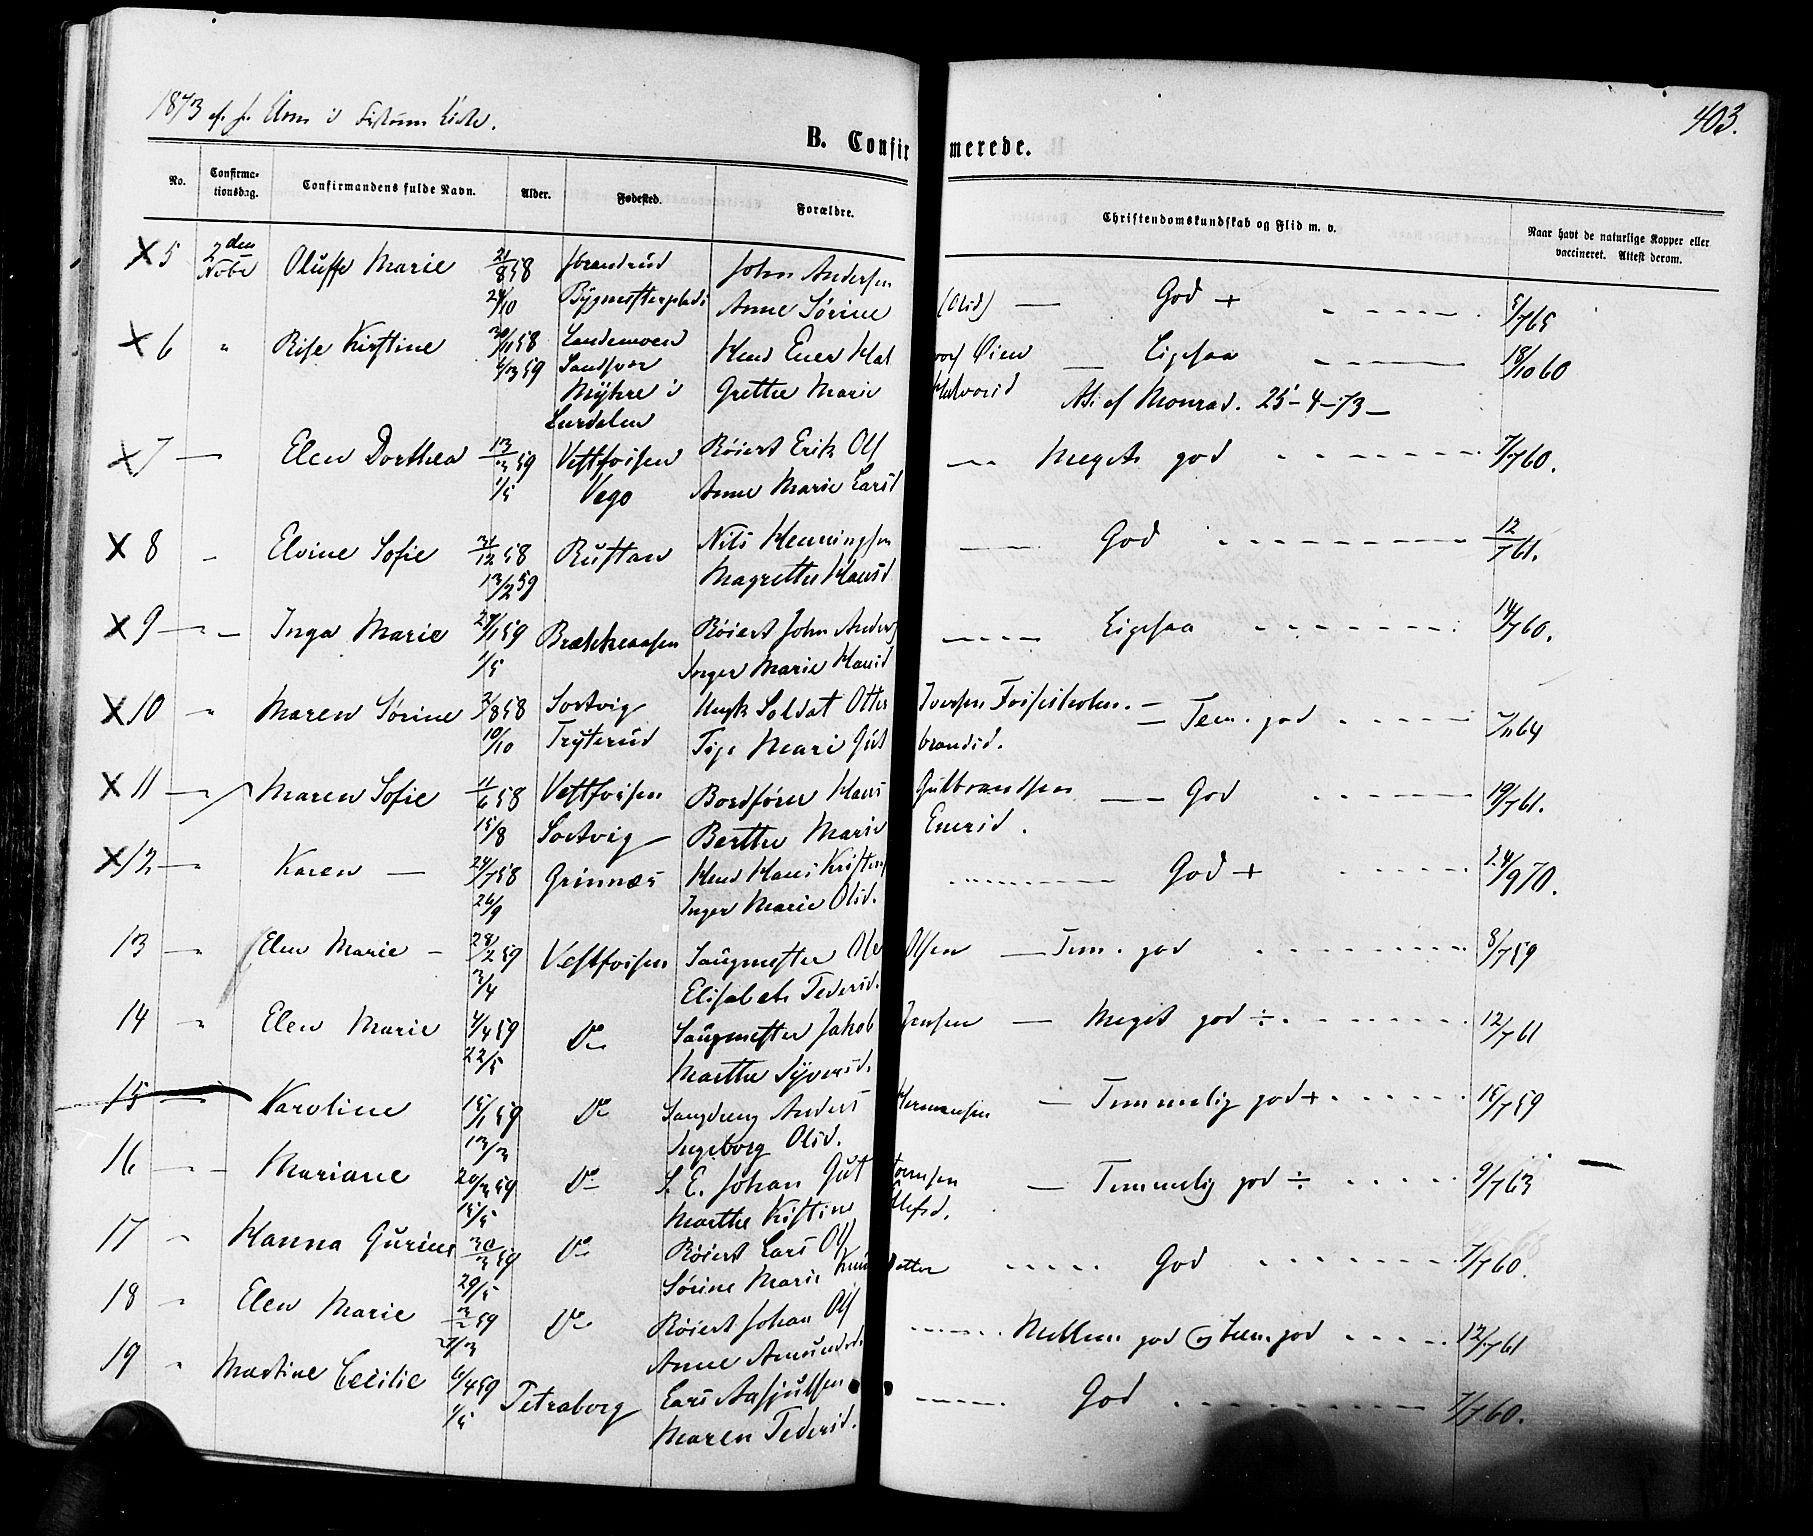 1873 af
403.
B. Confirmerede.
No. Confirmationsdag. Confirmandens fulde Navn. Alder. Fødested. Forældre. Christendomskundskab og Flid m. v. Naar havt de naturlige Kopper eller vaccineret. Attest derom.
5 2den Novbr Oluffe Marie 21/8 58 John Andersen
24/10 Bygmesterplads Anne Sørine (Olsd) — God + 5/7 65
6 " Rise Kirstine 30/11 58 Landemoen Hmd Ener Halvors Øien Ligesaa 18/10 60
Grethe Marie Halvorsd Att. af Monrad. 25-4-73 —
Myhre i
7 — Elen Dorthea 13/3 59 Vestfossen Røiert Erik Ols — Meget god 7/7 60.
1/5 Vego Anne Marie Larsd
8 " Elvine Sofie 31/12 58 Rustan Nils Henningsen — God 12/7 61.
13/2 59 Magrethe Hansd
9 — " — Inga Marie 27/1 59 Brækkeaasen Røiert John Anders Ligesaa 14/7 60.
1/5 Inger Marie Hansd
10 " Maren Sørine 2/8 58 Sortvig Soldat Otter Iversen — Tem. god 7/11 64
10/10 Tryterud Marie Gulbrandsd.
11 — " Maren Sofie 11/6 58 Vestfossen Bordfører Hans Gulbrandsen — God 19/7 61.
15/8 Sortvig Berthe Marie Enersd.
12 — " Karen — 24/7 58 Grinnæs Hmd Hans Kristens God + 24/9 70.
26/9 Inger Marie Olsd.
13 " Elen Marie — 28/2 59 Vestfossen Saugmester Ole Olsen — Tem. god 8/7 59
3/4 Elisabeth Pedersd.
14 " Elen Marie 4/4 59 Do Saugmester Jakob Jensen — Meget god ÷ 12/7 61
22/5 Marthe Syversd.
15 — Karoline 15/1 59 Do Saugdreng Anders Hermansen — Temmelig god + 15/7 59
13/3 Ingeborg Olsd.
16 — " — Mariane 20/3 59 Do S. E. Johan Gut — Temmelig god ÷ 9/7 63
15/5 Marthe Kistine
17 " Hanna Gurine 30/3 59 Do Røiert Lars Ols God 7/7 60.
29/5 Sørine Marie
18 " Elen Marie 3/2 59 Do Røiert Johan Ols Mellem god og tem. god 12/7 61
Anne Amundsd.
19 " Martine Cecilie 6/4 59 Petraborg Lars God 7/7 60.
1/5 Maren Pedersd.